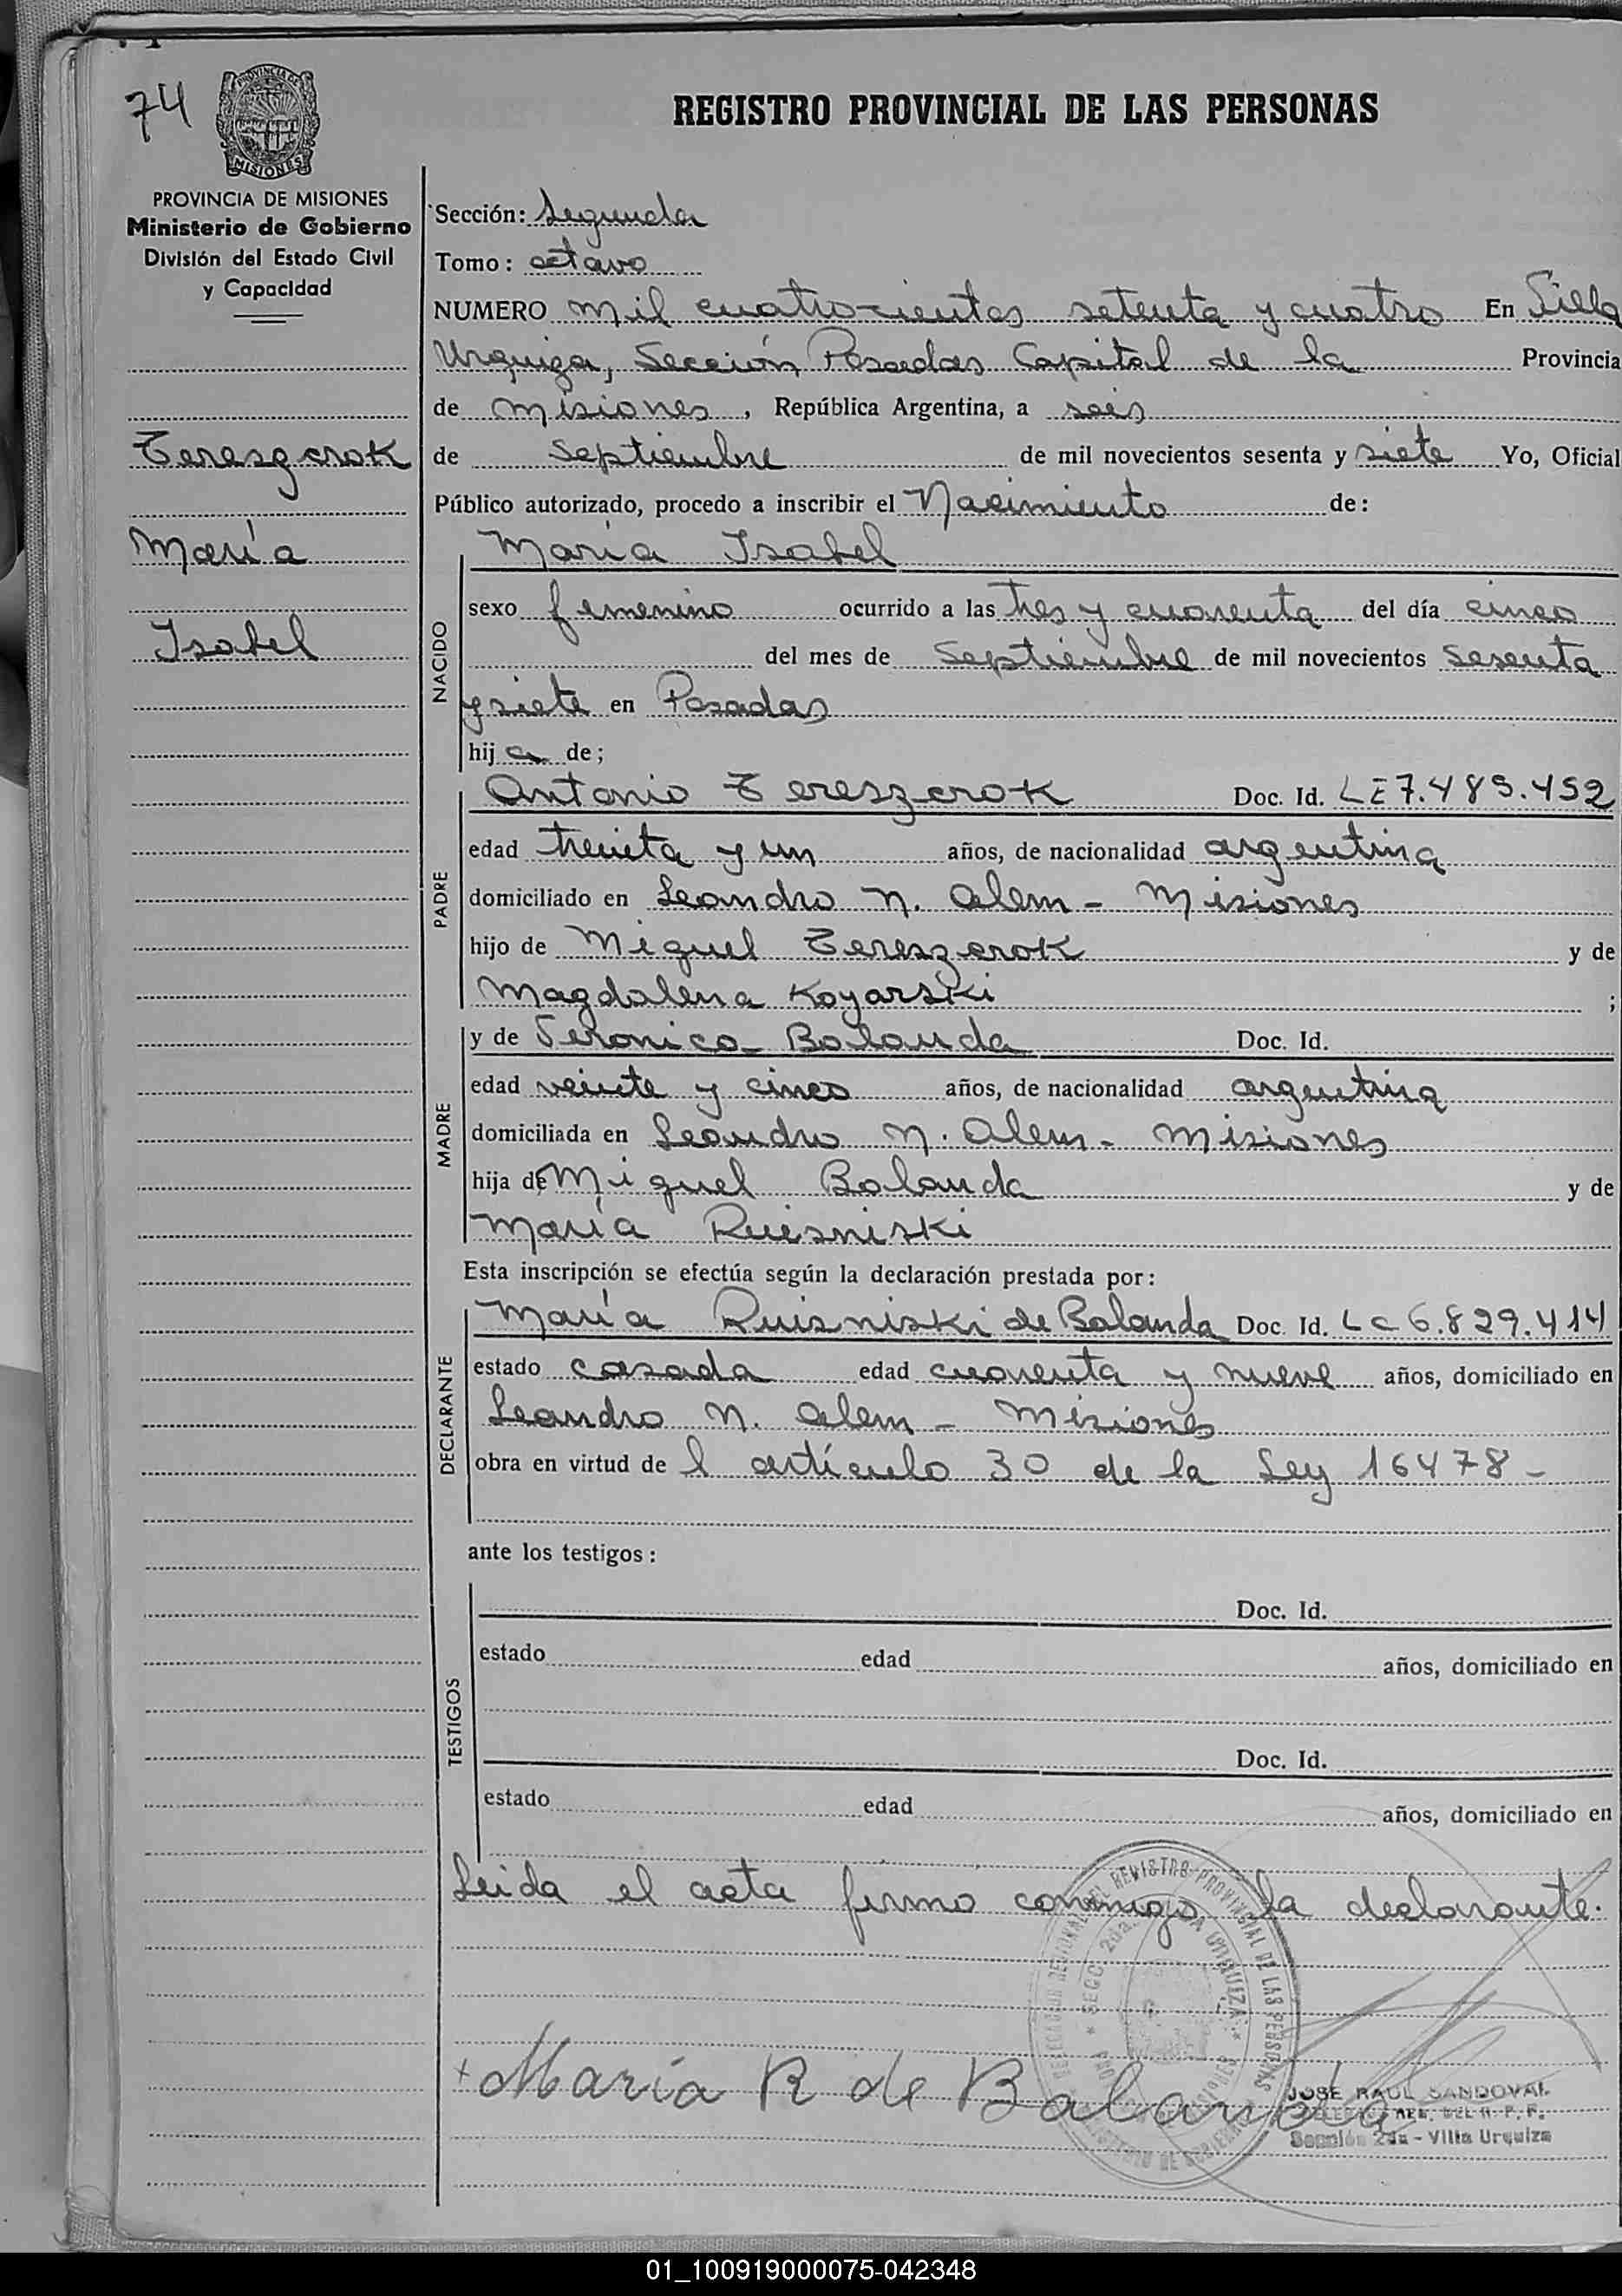 74
PROVINCIA DE MISIONES
REGISTRO PROVINCIAL DE LAS PERSONAS
PROVINCIA DE MISIONES
Ministerio de Gobierno
División del Estado Civil
y Capacidad
Tereszczok
María
Isabel
Sección: Segunda
Tomo: octavo
NUMERO mil cuatrocientos setenta y cuatro En Villa
Urquiza, Sección Posadas Capital de la Provincia
de Misiones, República Argentina, a seis
de Septiembre de mil novecientos sesenta y siete Yo, Oficial
Público autorizado, procedo a inscribir el Nacimiento de:
NACIDO
María Isabel
sexo femenino ocurrido a las tres y cuarenta del día cinco
del mes de Septiembre de mil novecientos sesenta
y siete en Posadas
hija de;
PADRE
Antonio Tereszczok Doc. Id. LE 7.485.452
edad treinta y un años, de nacionalidad argentina
domiciliado en Leandro N. Alem - Misiones
hijo de Miguel Tereszczok y de
Magdalena Koyarski ;
MADRE
y de Veronica Balanda Doc. Id.
edad veinte y cinco años, de nacionalidad argentina
domiciliada en Leandro N. Alem - Misiones
hija de Miguel Balanda y de
María Ruisniski
Esta inscripción se efectúa según la declaración prestada por:
DECLARANTE
María Ruisniski de Balanda Doc. Id. LC 6.829.414
estado casada edad cuarenta y nueve años, domiciliado en
Leandro N. Alem - Misiones
obra en virtud de l artículo 30 de la Ley 16478 -
ante los testigos:
TESTIGOS
Doc. Id.
estado edad años, domiciliado en
Doc. Id.
estado edad años, domiciliado en
Leida el acta firmo conmigo la declarante.
REGISTRO PROVINCIAL DE LAS PERSONAS
SECC. 2da. VILLA URQUIZA
+ María R de Balanda
JOSE RAUL SANDOVAL
Sección 2da - Villa Urquiza
01_100919000075-042348